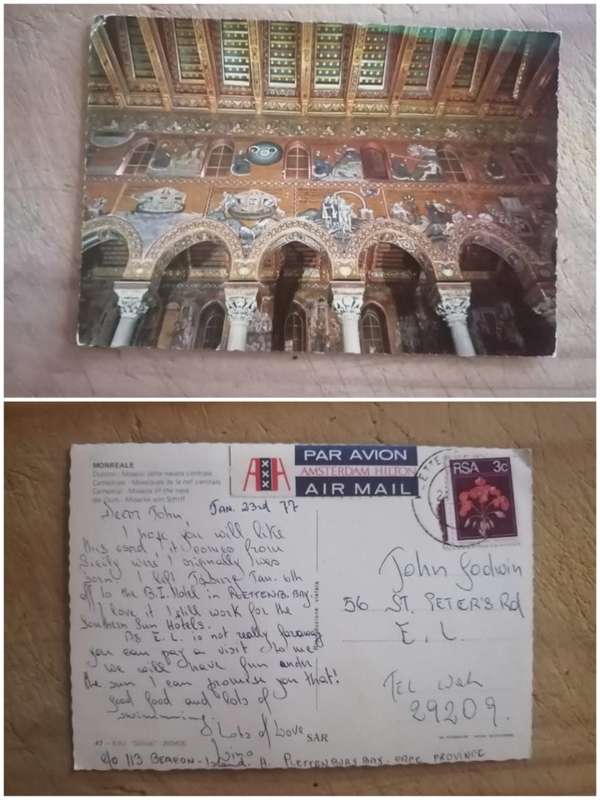 MONREALE
Duomo - Mosaici della navata centrale
Cathédrale - Mosaïques de la nef centrale
Cathedral - Mosaics of the nave
der Dom - Mosaike von Schiff
PAR AVION
AMSTERDAM HILTON
AIR MAIL
RSA 3c
Jan. 23rd 77
Dear John,
I hope you will like
this card, it comes from
Sicily were I originally was
born! I left Jan. 6th
off to the B.I. Hotel in PLETTENB. BAY.
I love it I still work for the
Southern Sun Hotels.
As E.L. is not really faraway
you can pay a visit to me
we will have fun under
the sun I can promise you that!
good food and lots of
swimming!
Lots of Love
SAR
c/o 113 BEACON-Island. H. PLETTENBURG BAY. CAPE PROVINCE
John Godwin
56 ST. PETER'S Rd
E. L.
TEL
29209.